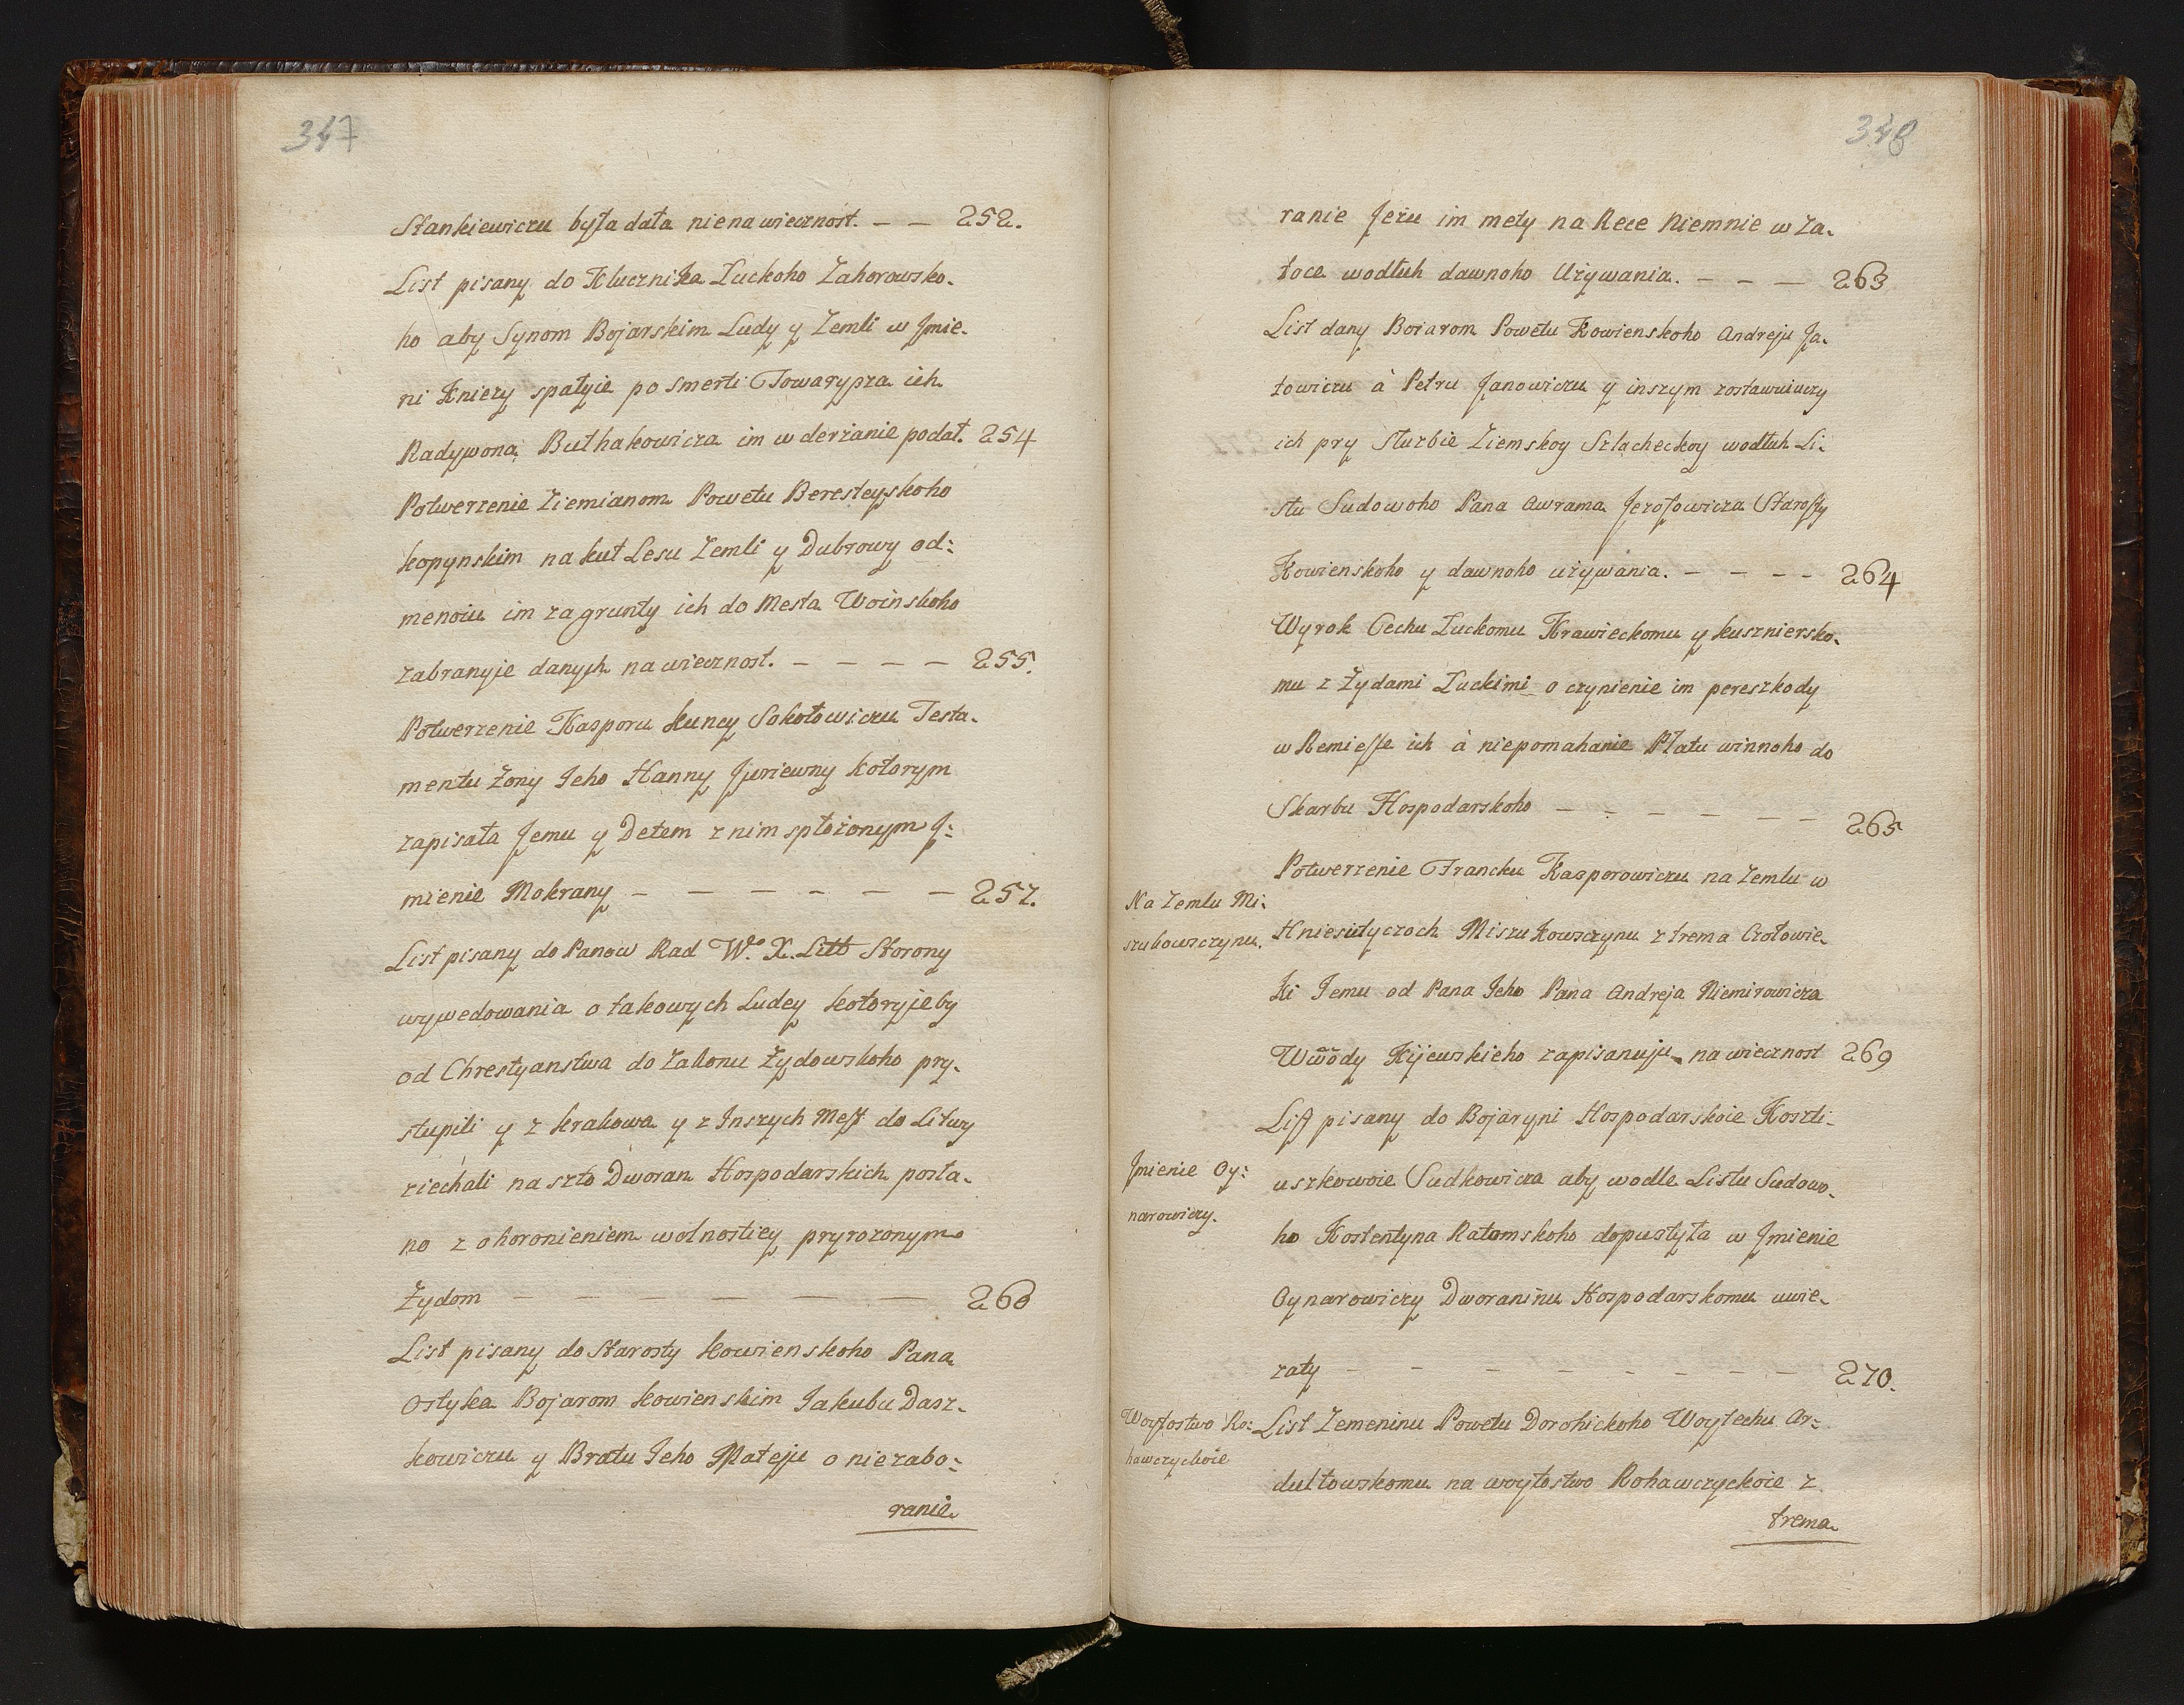 347
Stankiewiczu była data nie na wiecznost. – – 252.
List pisany do Klucznika Łuckoho Zahorowsko-
ho aby Synom Bojarskim Ludy y Zemli w Jmie-
ni Kniezy spałyie po smerti Towarysza ich
Radywona Bułhakowicza im w derżanie podał. 254
Potwerzenie Ziemianom Powetu Beresteyskoho
kopynskim na kut Lesu Zemli y Dubrowy od:
menoiu im za grunty ich do Mesta Woinskoho
zabranyie danych na wiecznost. – – – – 255.
Potwerzenie Kasporu Kuncy Sokołowiczu Testa-
mentu Żony Jeho Hanny Juriewny kotorym
zapisała Jemu y Detem z nim spłożonym J:
mienie Mokrany – – – – – – 257.
List pisany do Panow Rad W.o X. Litt Storony
wywedowania o takowych Ludey kotoryie by
od Chrestyanstwa do Zakonu Żydowskoho pry-
stupili y z Krakowa y z Inszych Mest do Litwy
ziechali na szto Dworan Hospodarskich posła-
no z ohoronieniem wolnostiey pryrozonym
Żydom – – – – – – – 260
List pisany do Starosty Kowienskoho Pana
Ostyka Bojarom kowienskim Jakubu Dasz-
kowiczu y Bratu Jeho Mateju o niezabo:
ranie
348
ranie Jezu im mety na Rece Niemnie w Za-
toce wodłuh dawnoho Używania. – – – 263
List dany Boiarom Powetu Kowienskoho Andreju Ja-
towiczu à Petru Janowiczu y inszym zostawuiuczy
ich pry Służbie Ziemskoy Szlacheckoy wodłuh Li:
stu Sudowoho Pana Awrama Jezofowicza Starosty
Kowienskoho y dawnoho używania. – – – – 264
Wyrok Cechu Łuckomu Krawieckomu y kuszniersko-
mu z Żydami Łuckimi o czynienie im pereszkody
w Remieśle ich à niepomahanie Płatu winnoho do
Skarbu Hospodarskoho – – – – – – 265
Na Zemlu Mi:
szukowszczynu.
Potwerzenie Francku Kasporowiczu na Zemlu w
Hniesutyczoch Miszukowszczynu z trema Czołowie-
ki Jemu od Pana Jeho Pana Andreja Niemirowicza
Wwody Kijewskieho zapisanuju na wiecznost 269
List pisany do Bojaryni Hospodarskoie Koszti-
Jmienie Oy:
narowiczy.
uszkowoie Sudkowicza aby wodle Listu Sudowo-
ho Kostentyna Ratomskoho dopustyła w Jmienie
Oynarowiczy Dworaninu Hospodarskomu uwie-
zaty – – – – – – – – 270.
Woytostwo Ro:
hawczyckoie
List Zemeninu Powetu Dorohickoho Woytechu Ar:
dultowskomu na woytostwo Rohawczyckoie z
trema